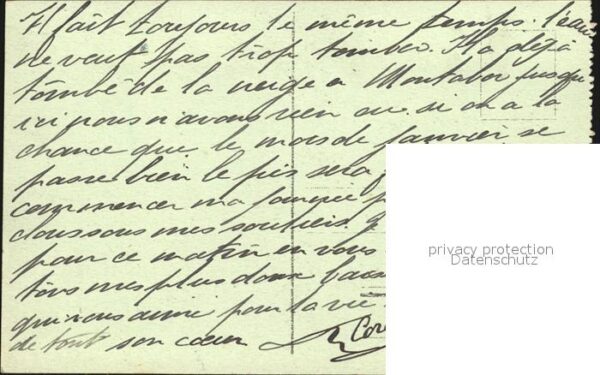 Il fait toujours le même temps. l'eau
ne veut pas trop tomber. Il a déjà
tombé de la neige a Montabor jusqu
ici nous n'avons rien eu. si on a la
chance que le mois de Janvier se
passe bien le pis sera
commencer ma journée
clous sous mes souliers.
pour ce matin en vous
tous mes plus doux baise
qui vous aime pour la vie
de tout son cœur
privacy protection
Datenschutz